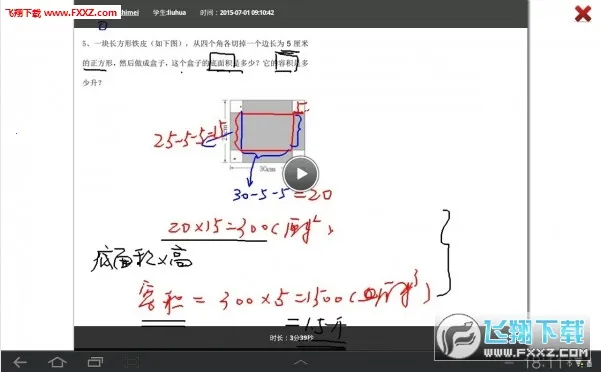 飞翔下载
www.FXXZ.com
himei 学生:liuhua 时间：2015-07-01 09:10:42
5、一块长方形铁皮（如下图），从四个角各切掉一个边长为 5 厘米
的正方形，然后做成盒子，这个盒子的底面积是多少？它的容积是多
少升？
5
25-5-5=15
30cm
30-5-5=20
20×15=300(厘米²)
底面积×高
容积=300×5=1500(厘米³)
=1.5升
时长：3分39秒
飞翔下载
www.fxxz.com
18:11